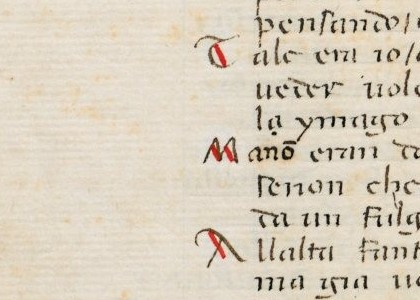 pensando/
Tale era io/
ueder uole
la ymago
Manō eran da
senon che
da un fulg
Allalta fant
ma gia uo